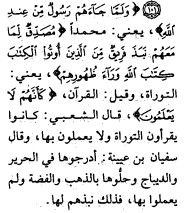 ﴿١٠١﴾ ﴿وَلَمَّا جَاءَهُمْ رَسُولٌ مِّنْ عِندِ
اللَّهِ﴾، يعني: محمداً ﴿مُصَدِّقٌ لِّمَا
مَعَهُمْ نَبَذَ فَرِيقٌ مِّنَ الَّذِينَ أُوتُوا الْكِتَابَ
كِتَابَ اللَّهِ وَرَاءَ ظُهُورِهِمْ﴾، يعني:
التوراة، وقيل: القرآن، ﴿كَأَنَّهُمْ لَا
يَعْلَمُونَ﴾، قال الشعبي: كانوا
يقرأون التوراة ولا يعملون بها، وقال
سفيان بن عيينة: أدرجوها في الحرير
والديباج وحلُّوها بالذهب والفضة ولم
يعملوا بها، فذلك نبذهم لها.